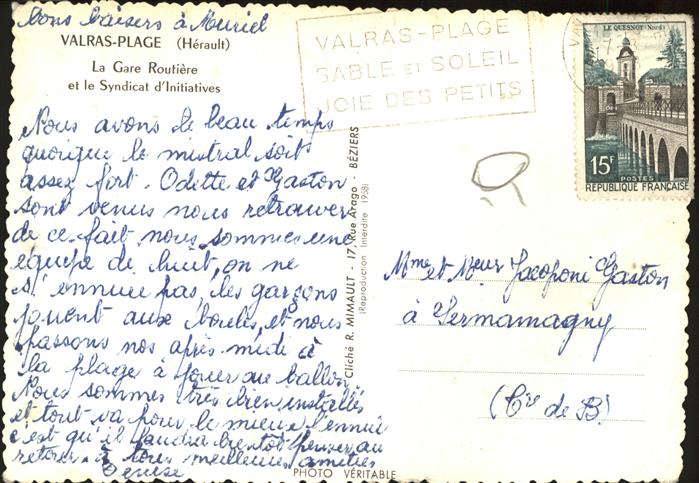 bons baisers à Muriel
VALRAS-PLAGE (Hérault)
La Gare Routière
et le Syndicat d'Initiatives
Nous avons de beau temps
quoique le mistral soit
assez fort. Odette et Gaston
sont venus nous retrouver
de ce fait nous sommes une
équipe de huit, on ne
s'ennuie pas, les garçons
jouent aux boules, et nous
passons nos après midi à
la plage à jouer au ballon.
Nous sommes très bien installés
et tout va pour le mieux l'ennui
c'est qu'il faudra bientôt penser au
retour. à tous meilleures amitiés
Denise
VALRAS-PLAGE
SABLE ET SOLEIL
JOIE DES PETITS
LE QUESNOY (Nord)
15F
POSTES
REPUBLIQUE FRANÇAISE
Cliché R. MIMAULT - 17, Rue Arago - BÉZIERS
(Reproduction Interdite 1958)
Mme et Meur Jacoponi Gaston
à Sermamagny
(Tre de B).
PHOTO VÉRITABLE